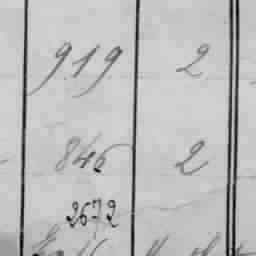 919 2
846 2
2672